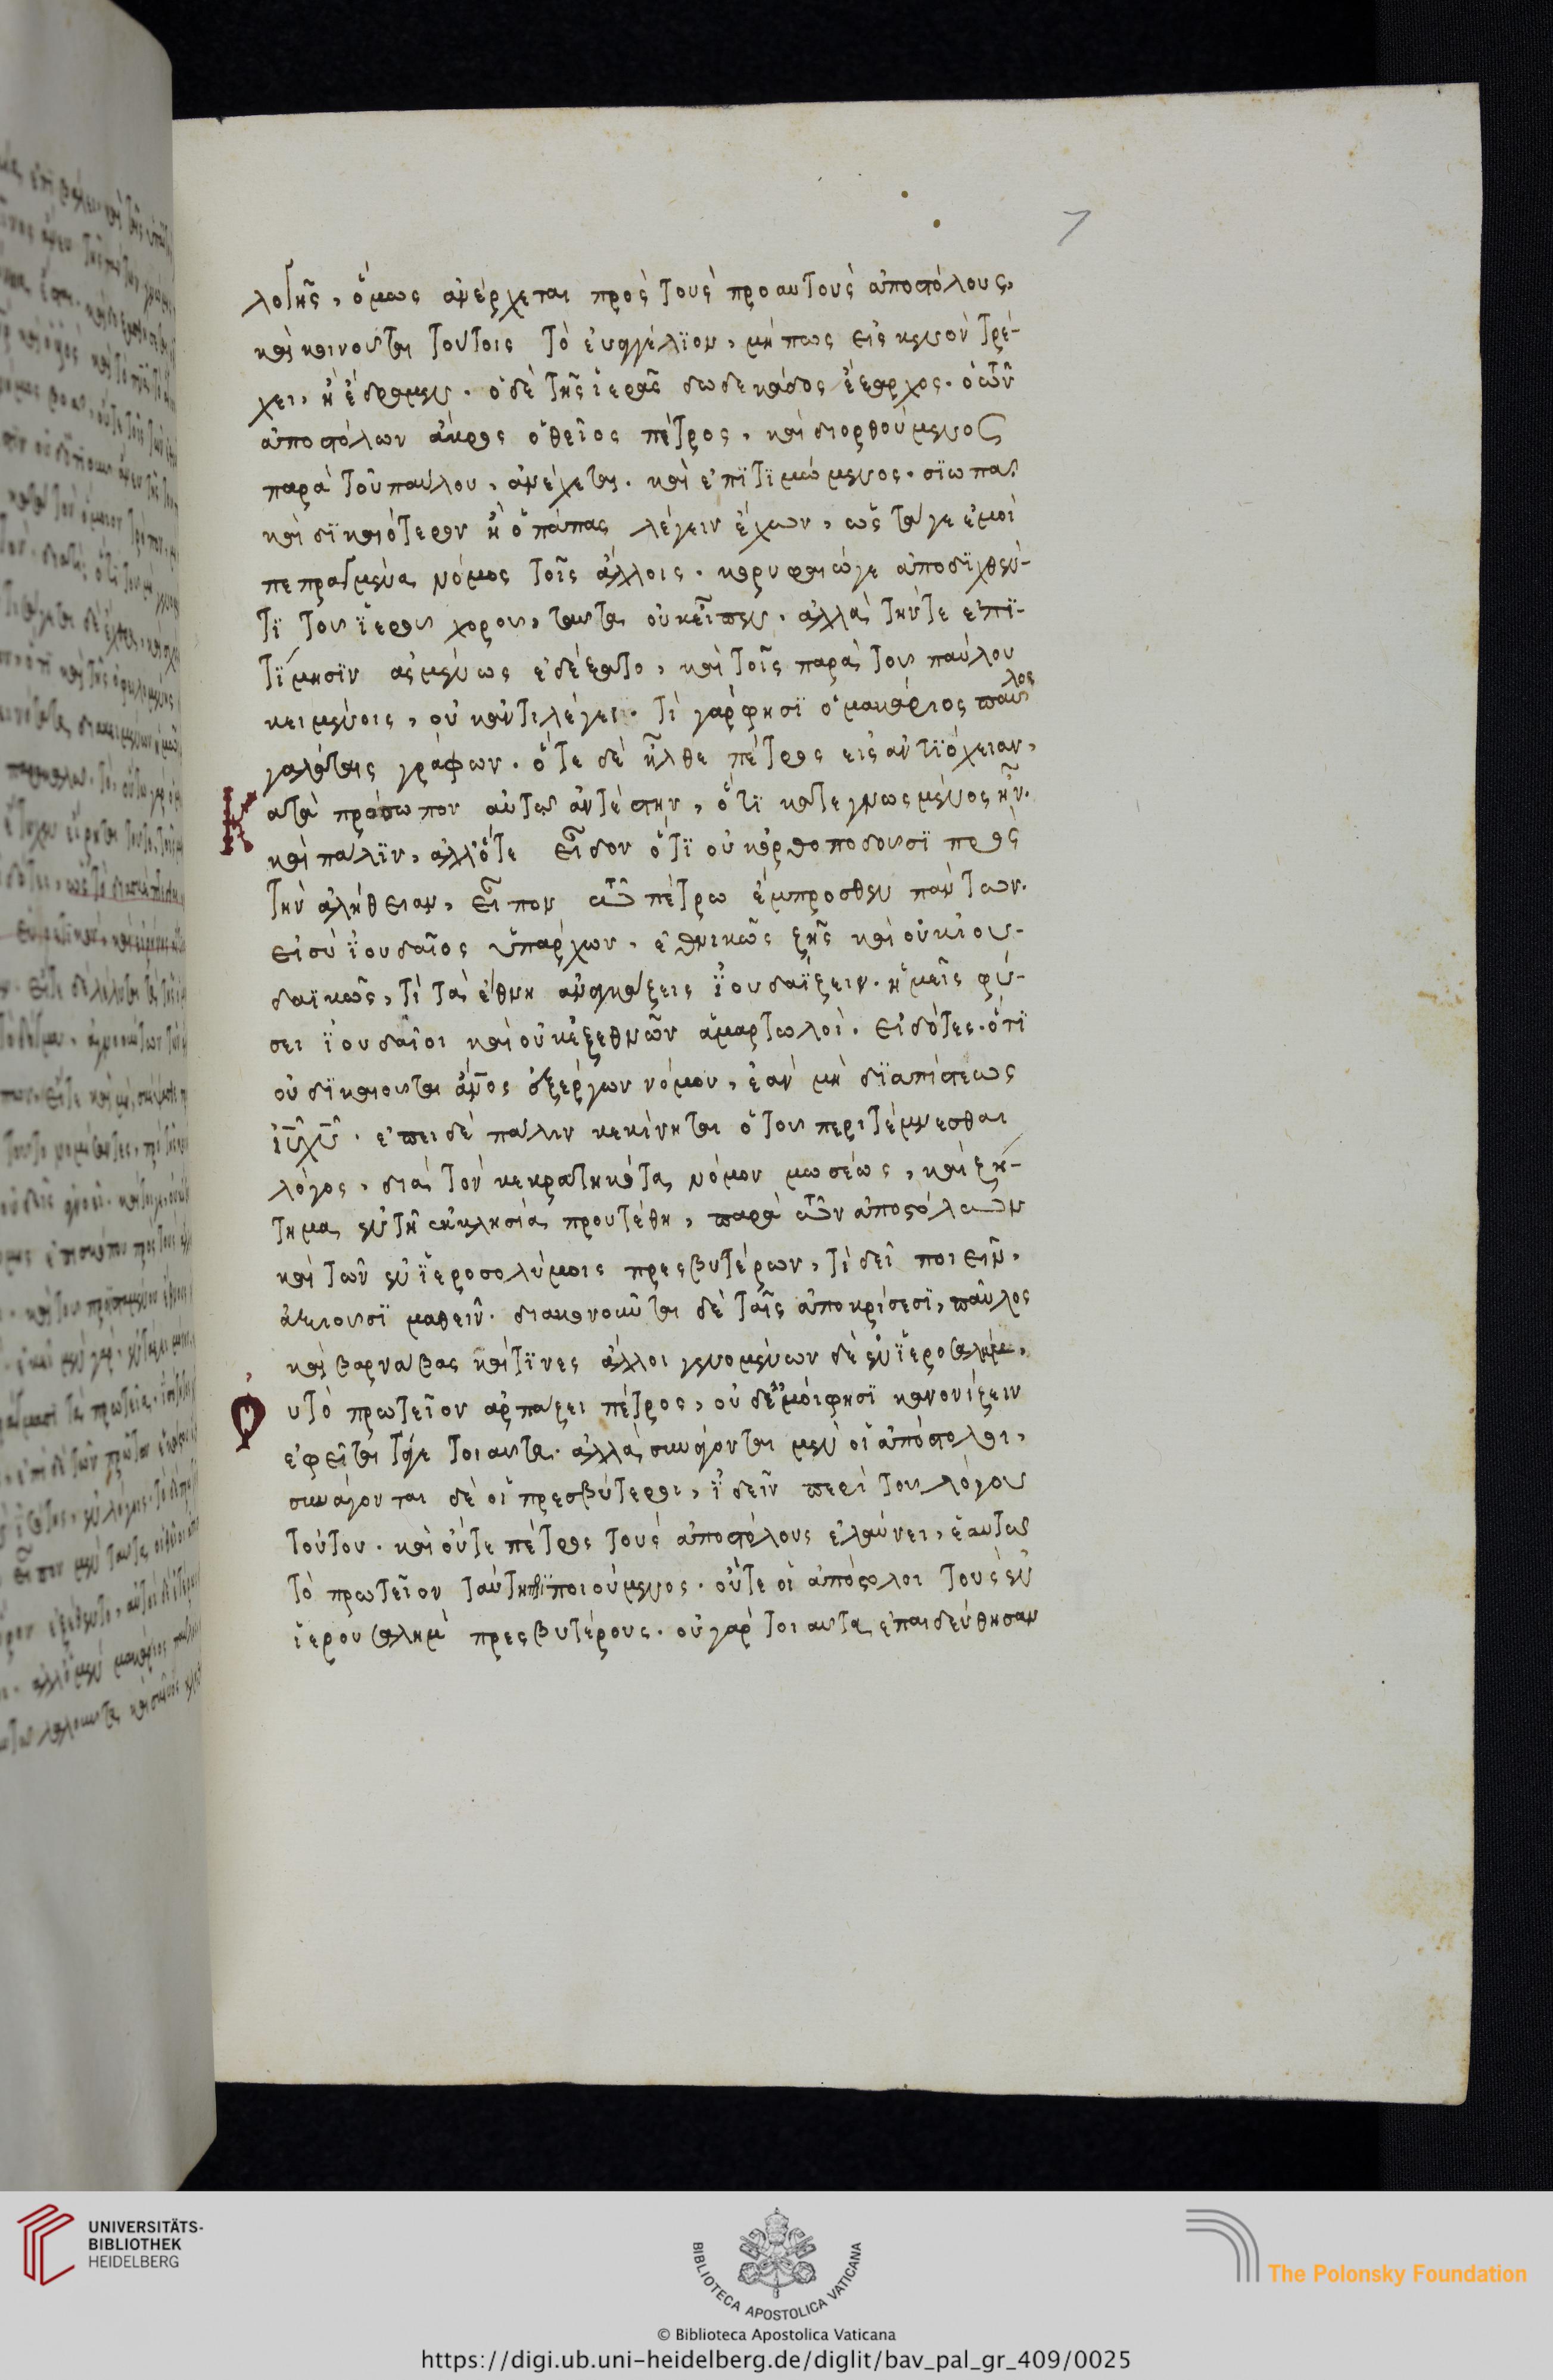 7
λογῆς, ὅμως ἀνέρχεται πρὸς τοὺς προαυτοῦς ἀποστόλους,
καὶ κοινοῦται τούτοις τὸ εὐαγγέλϊον, μήπως εἰς κενὸν τρέ-
χει, ἢ ἔδραμεν. ὁ δὲ τῆς ἱερᾶς δωδεκάδος ἔξαρχος. ὁ τῶν
ἀποστόλων ἄκρος ὁ θεῖος πέτρος, καὶ διορθούμενος
παρὰ τοῦ παύλου, ἀνέχεται. καὶ ἐπϊτϊμώμενος. σϊωπᾶ
καὶ δϊκαιότερον ἢ ὁ πάπας λέγειν ἔχων, ὡς τά γε ἐμοὶ
πεπραγμένα νόμος τοῖς ἄλλοις. κορυφαίω γε ἀποδϊχθέν-
τϊ τοῦ ϊεροῦ χοροῦ, ταῦτα οὐκ εἶπεν. ἀλλὰ τήν τε ἐπϊ-
τΐμησϊν ἀσμένως ἐδέξατο, καὶ τοῖς παρὰ τοῦ παύλου
κειμένοις, οὐκ ἀντιλέγει. τί γάρ φησϊ ὁ μακάριος παῦλος
γαλάταις γράφων. ὅτε δὲ ἦλθε πέτρος εἰς ἀντϊόχειαν,
Κατὰ πρόσωπον αὐτῶ ἀντέστην, ὅτϊ κατεγνωσμένος ἦν.
καὶ πάλϊν, ἀλλ' ὅτε εἶδον ὅτϊ οὐκ ὀρθοποδοῦσϊ πρὸς
τὴν ἀλήθειαν, εἶπον τῶ πέτρω ἔμπροσθεν πάντων.
εἰ σὺ ϊουδαῖος ὑπάρχων, ἐθνικῶς ζῆς καὶ οὐκ ϊου-
δαϊκῶς, τί τὰ ἔθνη ἀναγκάζεις ϊουδαΐζειν. ἡμεῖς φύ-
σει ϊουδαῖοι καὶ οὐκ ἐξ ἐθνῶν ἁμαρτωλοί. εἰδότες. ὅτϊ
οὐ δϊκαιοῦται ἄνος ἐξ ἔργων νόμου, ἐὰν μὴ δϊαπίστεως
ἰῦ χῦ. ἐπεὶ δὲ πάλιν κεκίνηται ὁ τοῦ περιτέμνεσθαι
λόγος, διὰ τὸν κεκρατηκότα νόμον μωσέως, καὶ ζή-
τημα ἐν τῆ ἐκκλησία προυτέθη, παρὰ τῶν ἀποστόλων
καὶ τῶν ἐν ϊεροσολύμοις πρεσβυτέρων, τί δεῖ ποιεῖν,
ἀξιοῦσϊ μαθεῖν. διακονοῦνται δὲ ταῖς ἀποκρίσεσϊ, παῦλος
καὶ βαρνάβας καί τϊνες ἄλλοι γενομένων δὲ ἐν ϊεροσαλήμ,
Ουτὸ πρωτεῖον ἁρπάζει πέτρος, οὐδ' ἐμοί φησϊ κανονίζειν
ἐφεῖται τά γε τοιαῦτα. ἀλλὰ συνάγονται μὲν οἱ ἀπόστολοι,
συνάγονται δὲ οἱ πρεσβύτεροι, ϊδεῖν περὶ τοῦ λόγου
τούτου. καὶ οὔτε πέτρος τοὺς ἀποστόλους ἐλαύνει, ἑαυτῶ
τὸ πρωτεῖον ταύτη ποιούμενος. οὔτε οἱ ἀπόστολοι τοὺς ἐν
ϊερουσαλημ πρεσβυτέρους. οὐ γὰρ τοιαῦτα ἐπαιδεύθησαν
UNIVERSITÄTS-
BIBLIOTHEK
HEIDELBERG
BIBLIOTECA APOSTOLICA VATICANA
The Polonsky Foundation
© Biblioteca Apostolica Vaticana
https://digi.ub.uni-heidelberg.de/diglit/bav_pal_gr_409/0025